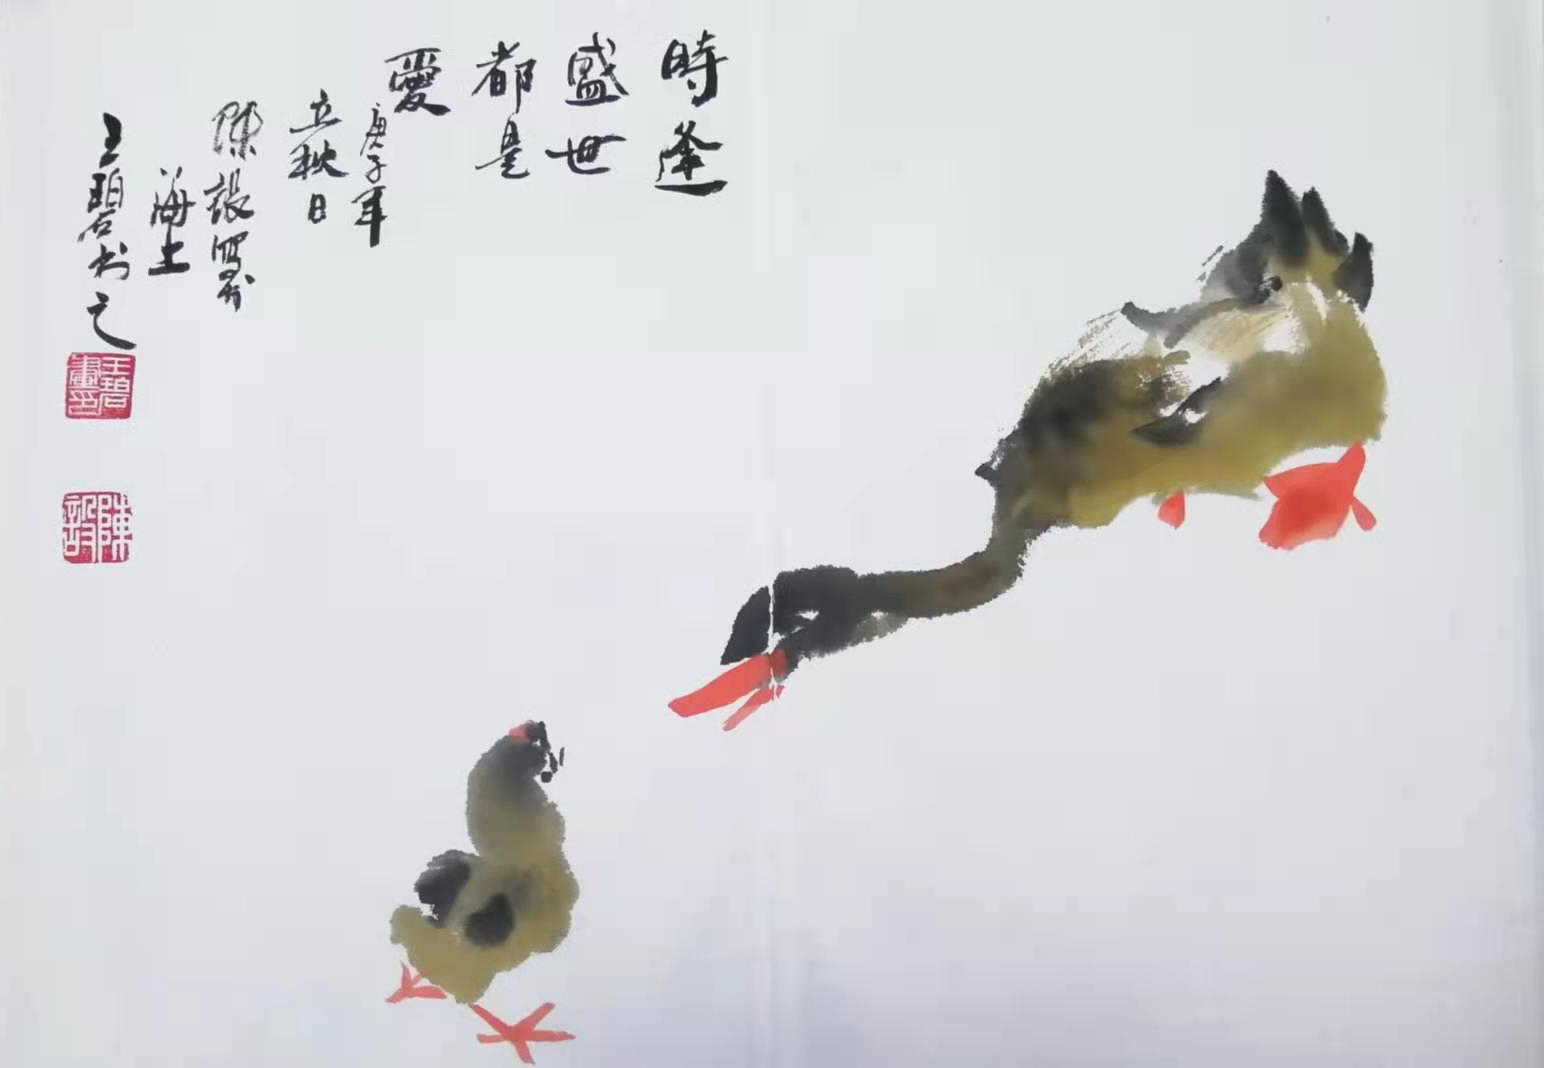 時逢
盛世
都是
愛
庚子年
立秋日
陳設寫於
海上
王碧书之
王碧
畫印
陳設